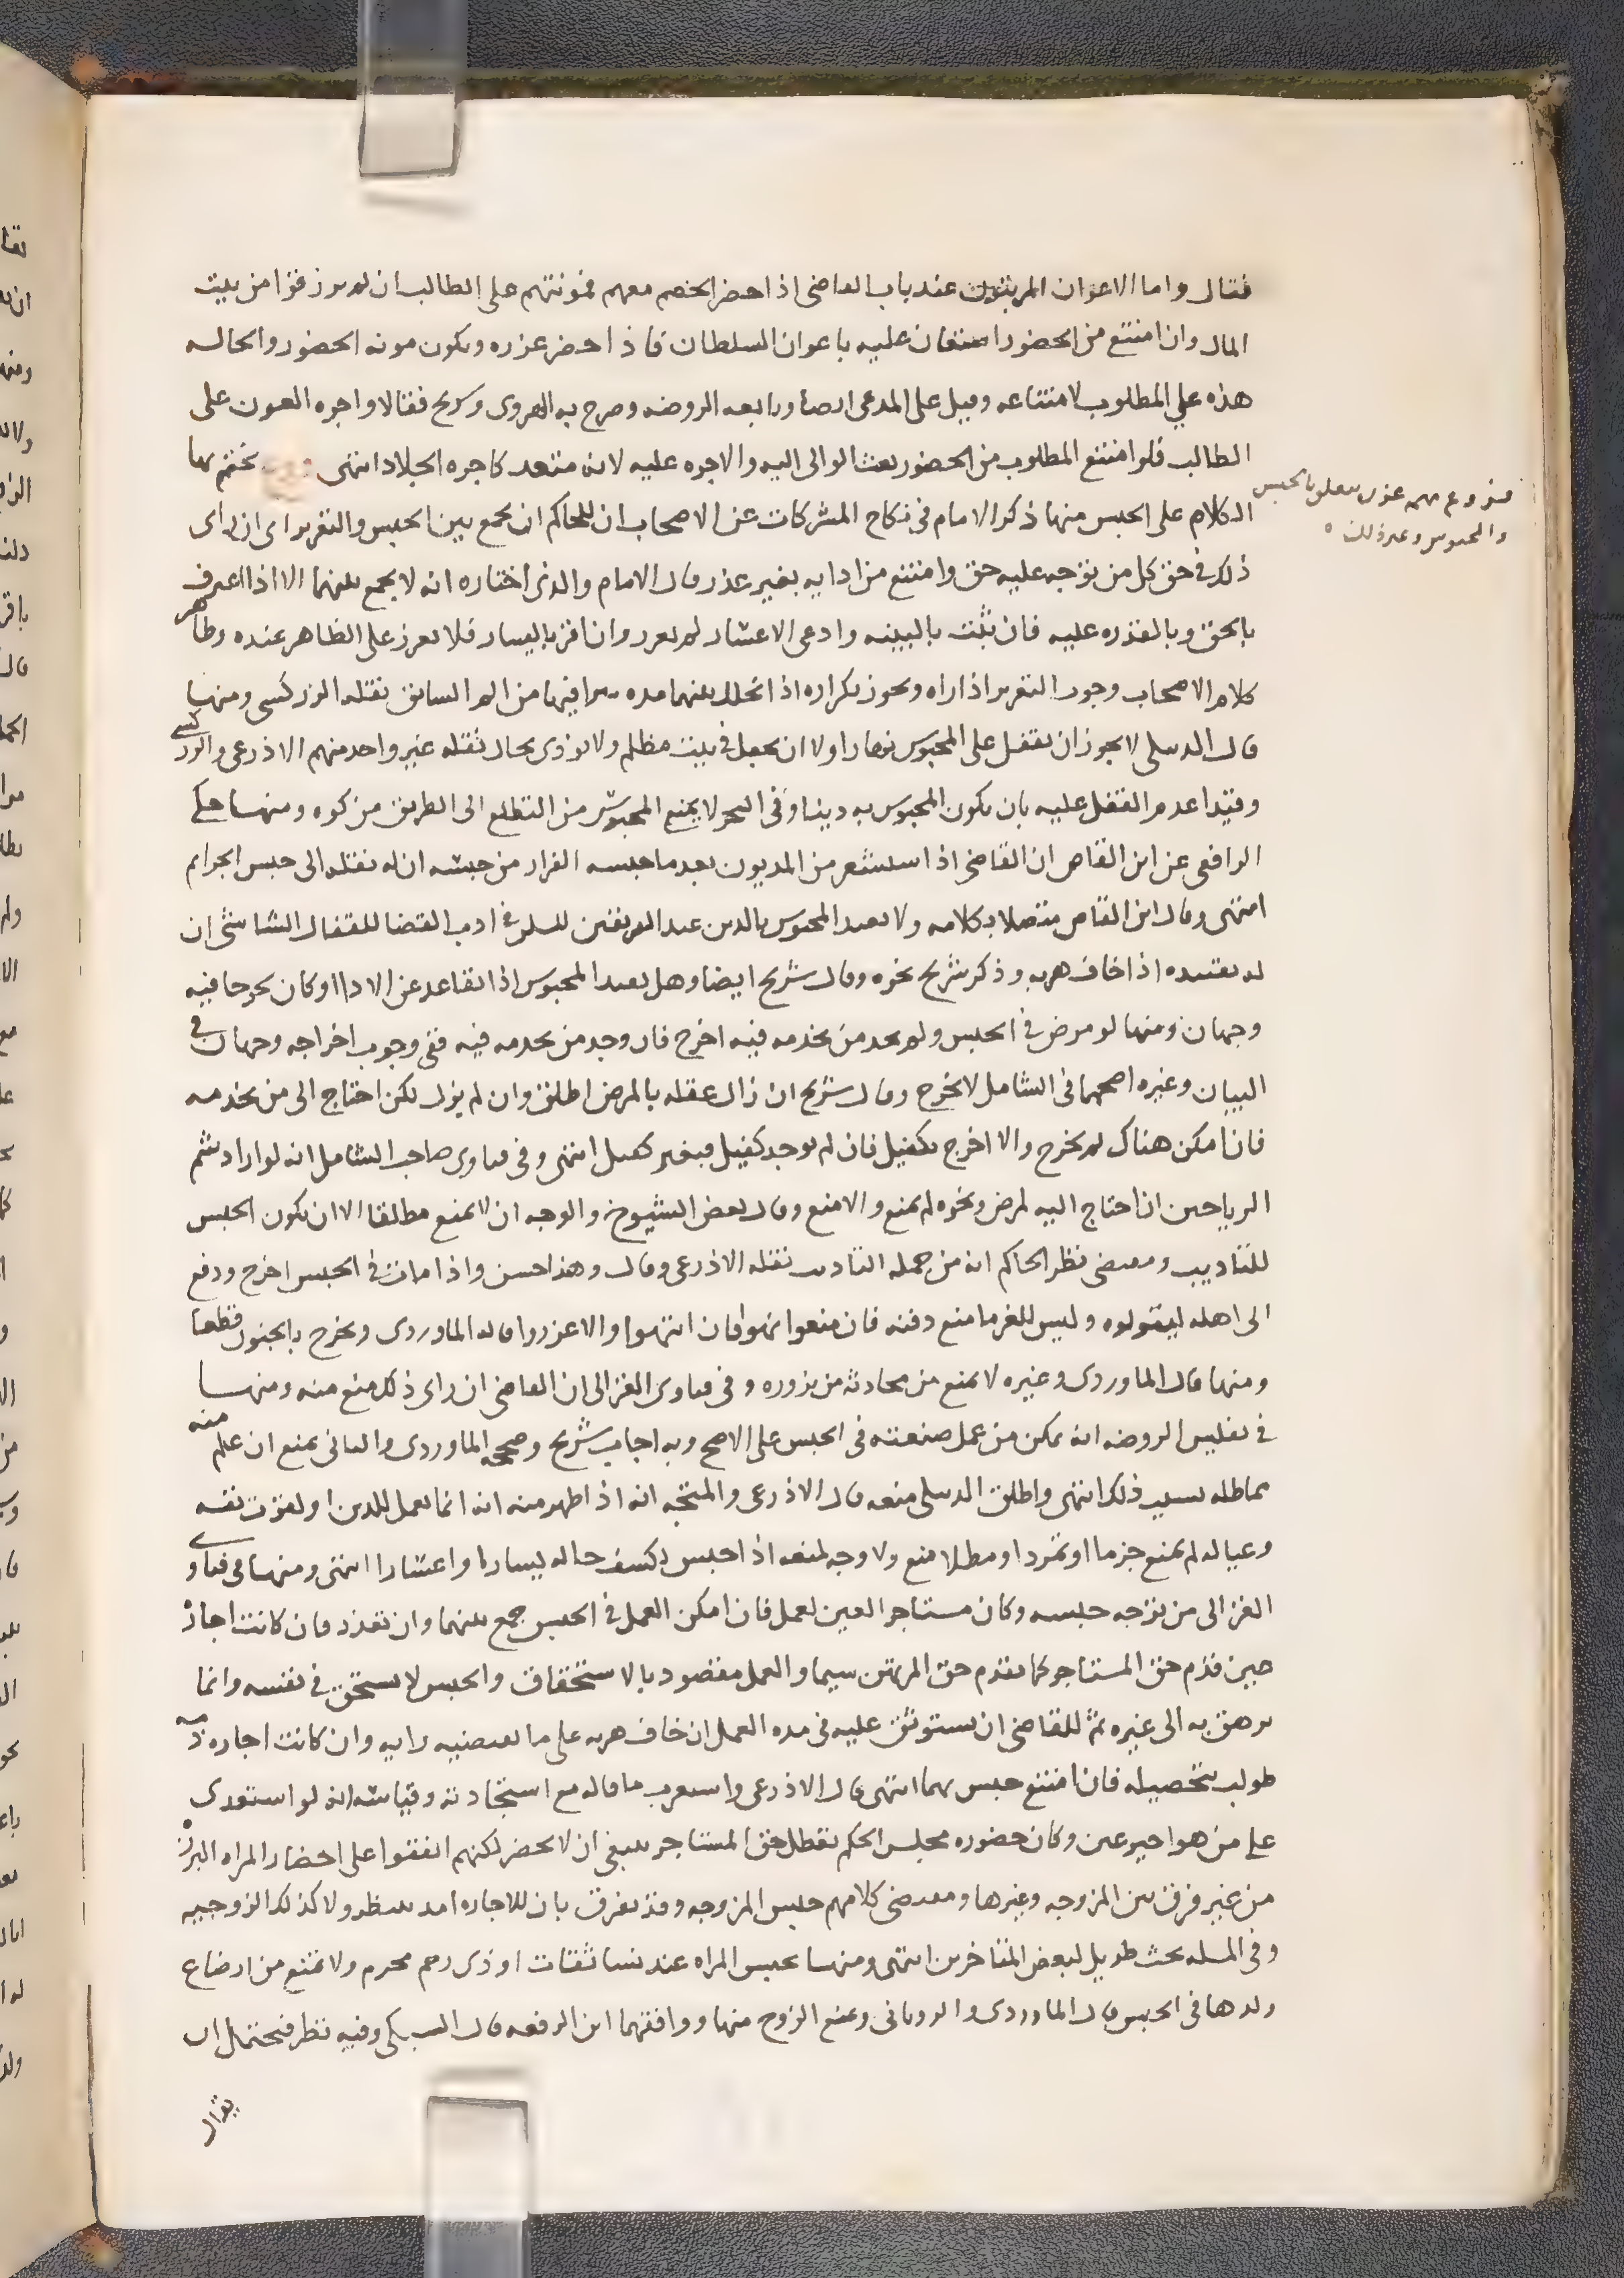 فقال واما الاعوان المرتبون عند باب القاضى اذا احضر الخصم معهم فمونتهم على الطالب ان لم يرزقوا من بيت
المال وان امتنع من الحضور استعان عليه باعوان السلطان فاذا احضر عزره وتكون مونه الحضور والحاله
هذه على المطلوب لامتناعه وقيل على المدعى ايضا وتابعه الروضه وصرح به الهروى وشريح فقالا واجره العون على
الطالب فلو امتنع المطلوب من الحضور بعث الوالى اليه والاجره عليه لانه متعد كاجره الجلاد انتهى نختم بها
الكلام على الحبس منها ذكر الامام فى نكاح المشركات عن الاصحاب ان للحاكم ان يجمع بين الحبس والتعزير اى ان راى
ذلك فى حق كل من توجه عليه حق وامتنع من ادايه بغير عذر قال الامام والذى اختاره انه لا يجمع بينهما الا اذا اعترف
بالحق وبالقدره عليه فان ثبت بالبينه وادعى الاعسار لم يعزر وان اقر باليسار فلا يعزر على الظاهر عنده وظاهر
كلام الاصحاب وجود التعزير اذا راه ويجوز تكراره اذا تخلل بينهما مده يبرا فيها من الم السابق نقله الزركشى ومنها
قال الدبيلى لا يجوز ان يقفل على المحبوس نهارا ولا ان يجعل فى بيت مظلم ولا يوذى بحال نقله غير واحد منهم الاذرعى والزركشى
وقيدا عدم القفل عليه بان يكون المحبوس به دينا وفى البحر لا يمنع المحبوس من التطلع الى الطريق من كوه ومنها حكى
الرافعى عن ابن القاص ان القاضى اذا استشعر من المديون بعد ما حبسه الفرار من حبسه ان له نقله الى حبس الجرايم
انتهى وقال ابن القاص متصلا بكلامه ولا يقيد المحبوس بالدين عند الفريقين لكن فى ادب القضا للقفال الشاشى ان
له تقييده اذا خاف هربه وذكر شريح نحوه وقال شريح ايضا وهل يقيد المحبوس اذا تقاعد عن الادا او كان لحوحا فيه
وجهان ومنها لو مرض فى الحبس ولم يجد من يخدمه فيه اخرج فان وجد من يخدمه فيه ففى وجوب اخراجه وجهان فى
البيان وغيره اصحهما فى الشامل لا يخرج وقال شريح ان زال عقله بالمرض اطلق وان لم يزل لكن احتاج الى من يخدمه
فان امكن هناك لم يخرج والا اخرج بكفيل فان لم يوجد كفيل فبغير كفيل انتهى وفى فتاوى صاحب الشامل انه لو اراد شم
الرياحين ان احتاج اليه لمرض ونحوه لم يمنع والا منع وقال بعض الشيوخ والوجه ان لا يمنع مطلقا الا ان يكون الحبس
للتاديب ومقتضى نظر الحاكم انه من جمله التاديب نقله الاذرعى وقال وهذا حسن واذا مات فى الحبس اخرج ودفع
الى اهله ليتولوه وليس للغرما منع دفنه فان منعوا نهوا فان انتهوا والا عزروا قاله الماوردى ويخرج بالجنون قطعا
ومنها قال الماوردى وغيره لا يمنع من محادثه من يزوره وفى فتاوى الغزالى ان القاضى ان راى ذلك منع منه ومنها
فى تفليس الروضه انه يمكن من عمل صنعته فى الحبس على الاصح وبه اجاب شريح وصححه الماوردى والثانى يمنع ان علم منه
مماطله بسبب ذلك انتهى واطلق الدبيلى منعه قال الاذرعى والمتجه انه اذا ظهر منه انه انما يعمل للدين او لقوت نفسه
وعياله لم يمنع جزما او تمردا ومطلا منع ولا وجه لمنعه اذا حبس لكشف حاله يسارا واعسارا انتهى ومنها فى فتاوى
الغزالى من توجه حبسه وكان مستاجر العين لعمل فان امكن العمل فى الحبس جمع بينهما وان تعذر فان كانت اجازه
عين قدم حق المستاجر كما يقدم حق المرتهن سيما والعمل مقصود بالاستحقاق والحبس لا يستحق فى نفسه وانما
يرهق به الى غيره ثم للقاضى ان يستوثق عليه فى مده العمل ان خاف هربه على ما يقتضيه رايه وان كانت اجاره ذمه
طولب بتحصيله فان امتنع حبس بهما انتهى قال الاذرعى واستغرب ما قاله مع استجادته وقياسه انه لو استعدى
على من هو اجير عين وكان حضوره مجلس الحكم يعطل حق المستاجر ينبغى ان لا يحضر لكنهم اتفقوا على احضار المراه البرزه
من غير فرق بين المزوجه وغيرها ومقتضى كلامهم حبس المزوجه وقد يفرق بان للاجاره امد ينتظر ولا كذلك الزوجيه
وفى المسله بحث طويل لبعض المتاخرين انتهى ومنها تحبس المراه عند نسا ثقات او ذى رحم محرم ولا تمنع من ارضاع
ولدها فى الحبس قال الماوردى والرويانى ويمنع الزوج منها ووافقهما ابن الرفعه قال السبكى وفيه نظر فيحتمل ان
يقال
فروع مهمه تتعلق بالحبس
والمحبوس وغير ذلك